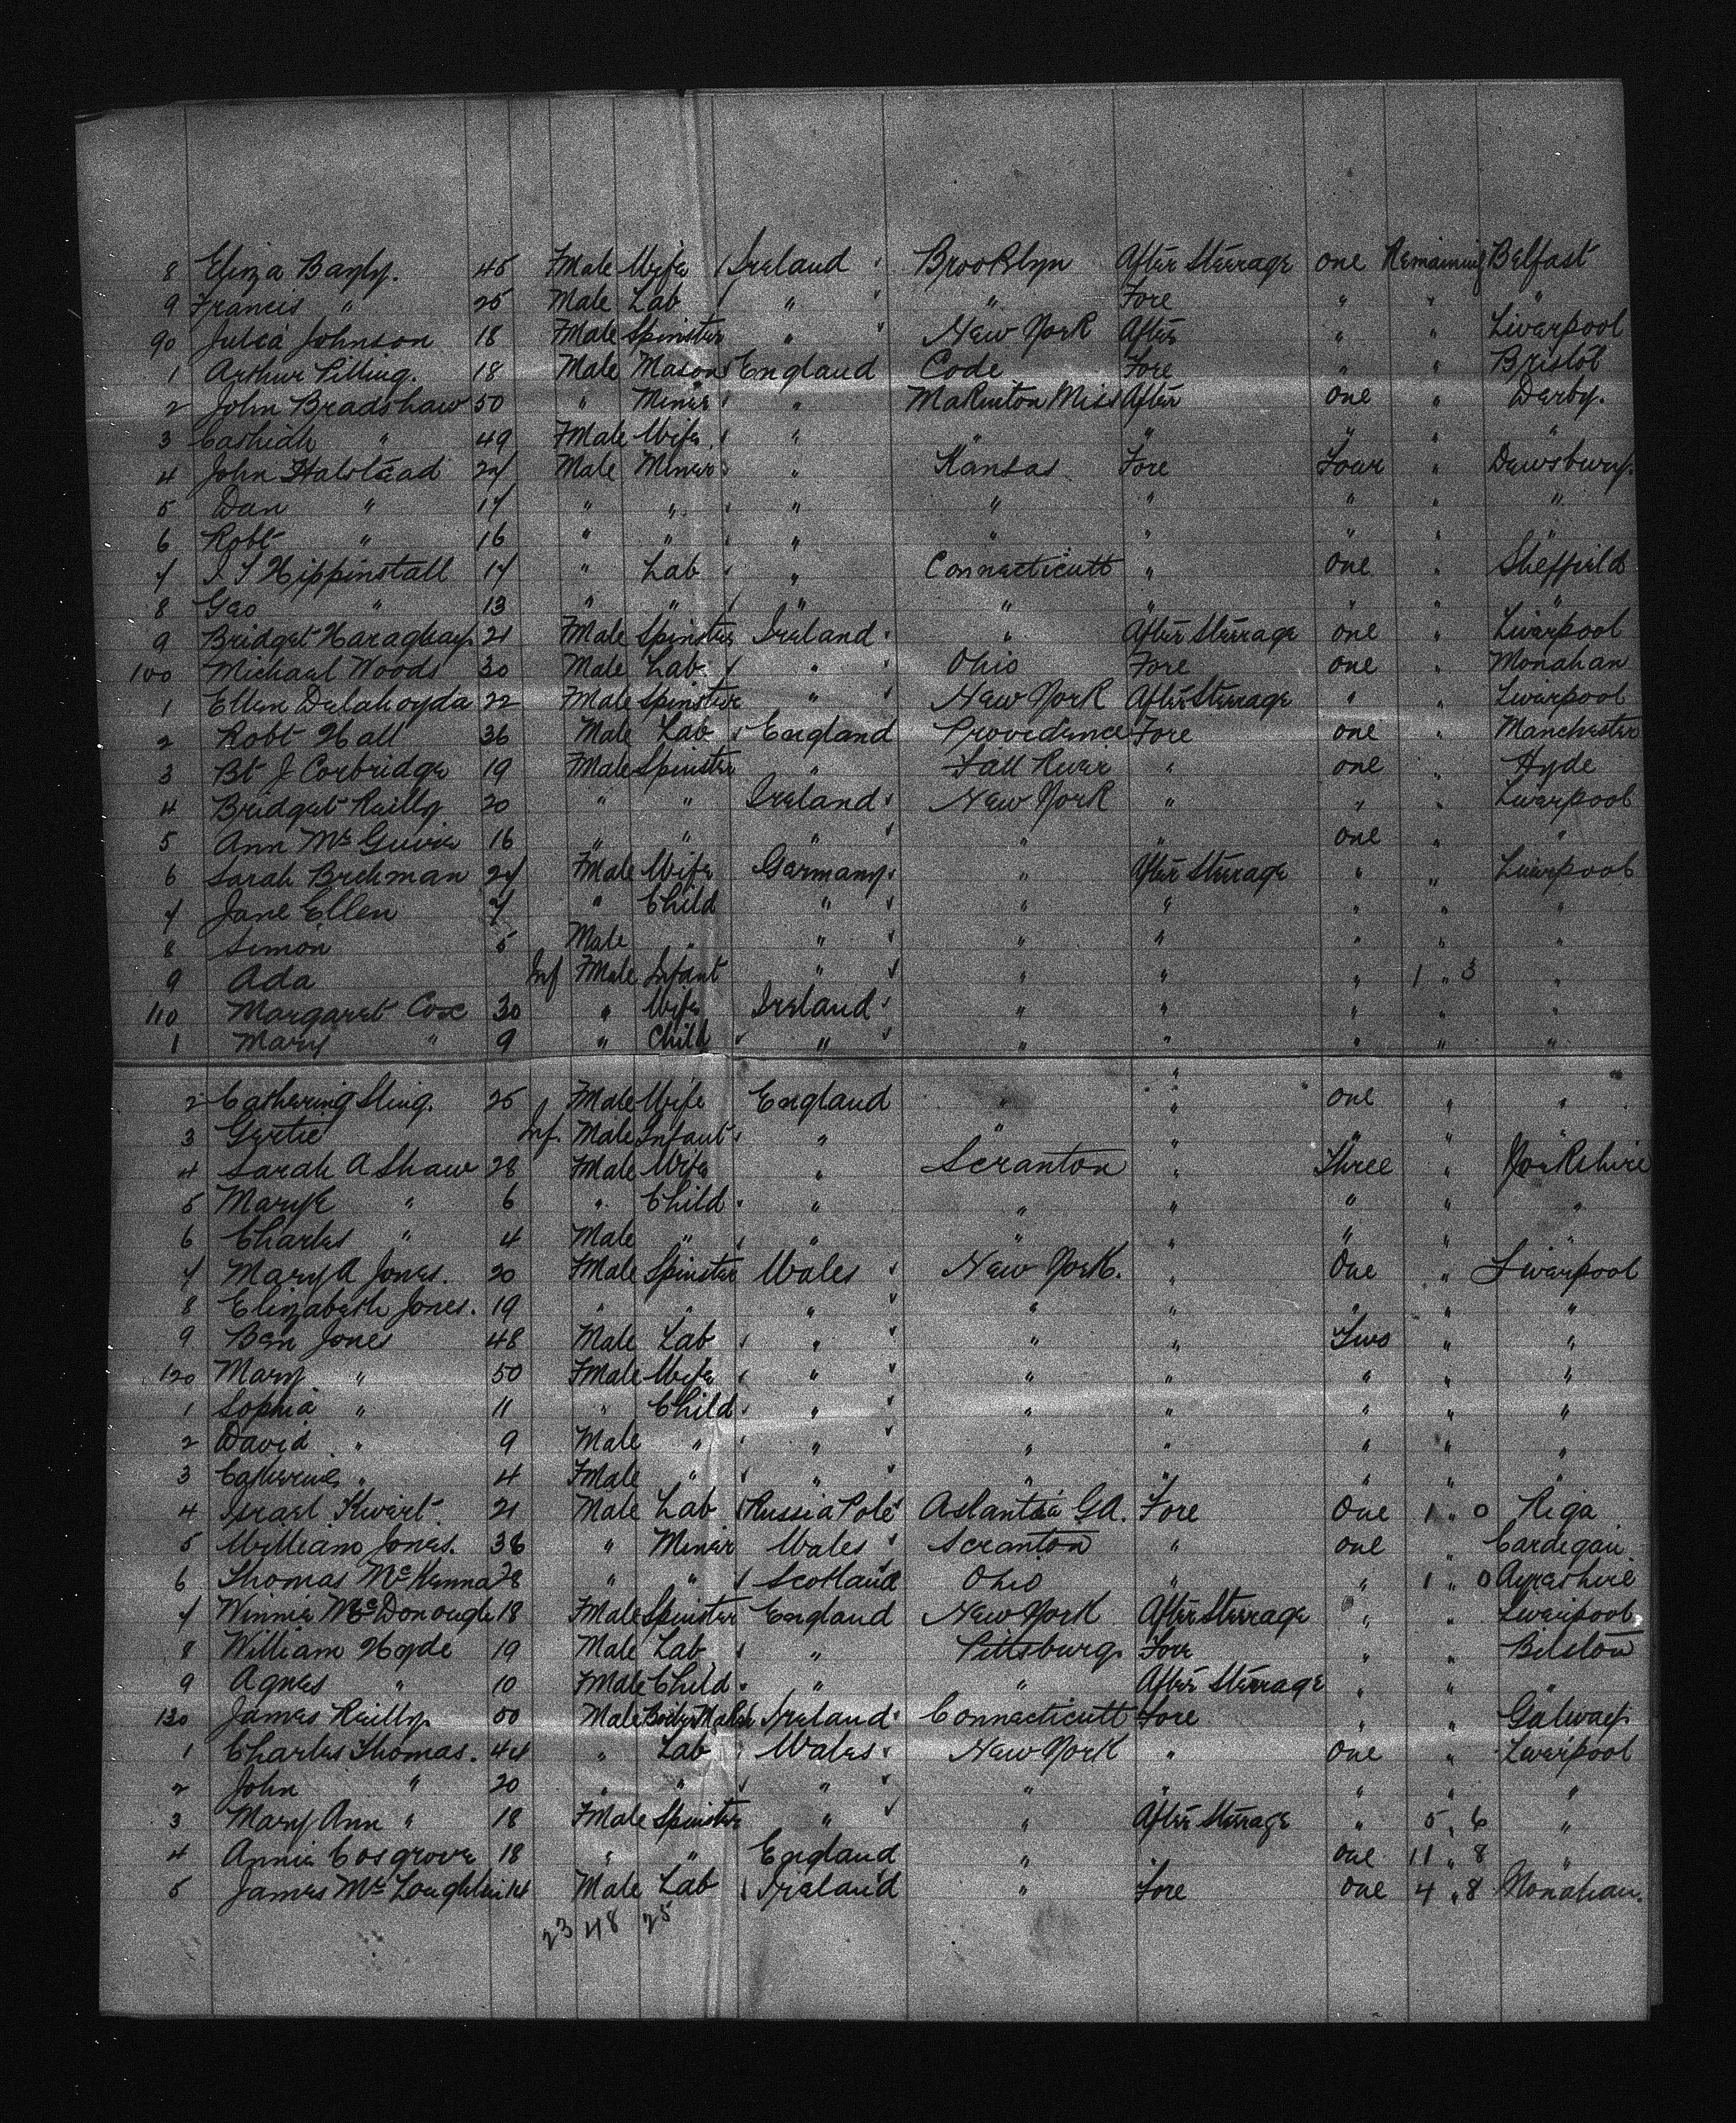 8 Eliza Bayly. 45 FMale Wife Ireland Brooklyn After Steerage one Remaining Belfast
9 Francis " 25 Male Lab " " Fore " " "
90 Julia Johnson 18 FMale Spinster " New York After " " Liverpool
1 Arthur Pilling. 18 Male Mason England Code Fore " " Bristol
2 John Bradshaw 50 " Miner " Makinton Miss After one " Derby.
3 Cashiah " 49 FMale Wife " " " " " "
4 John Halstead 24 Male Miner " Kansas Fore Four " Dewsbury.
5 Dan " 17 " " " " " " " "
6 Robt " 16 " " " " " " " "
7 Hippinstall 17 " Lab " Connecticutt " one " Sheffield
8 Geo " 13 " " " " " " " "
9 Bridget Haraghay 21 FMale Spinster Ireland " After Steerage one " Liverpool
100 Michael Woods 30 Male Lab " Ohio Fore one " Monahan
1 Ellen Delahoyda 22 FMale Spinster " New York After Steerage " " Liverpool
2 Robt Hall 36 Male Lab England Providence Fore one " Manchester
3 Bt J Corbridge 19 FMale Spinster " Fall River " one " Hyde
4 Bridget Reilly 20 " " Ireland New York " " " Liverpool
5 Ann Mc Guire 16 " " " " " one " "
6 Sarah Brekman 27 FMale Wife Germany " After Steerage " " Liverpool
7 Jane Ellen 7 " Child " " " " " "
8 Simon 5 Male " " " " " " "
9 Ada Inf FMale Infant " " " " 1 " 3 "
110 Margaret Cox 30 " Wife Ireland " " " " "
1 Mary " 9 " Child " " " " " "
2 Catherine Sling. 25 FMale Wife England " " one " "
3 Gertie Inf. Male Infant " " " " " "
4 Sarah A Shaw 28 FMale Wife " Scranton " Three " Yorkshire
5 Mary E " 6 " Child " " " " " "
6 Charles " 4 Male " " " " " " "
7 Mary A Jones. 20 FMale Spinster Wales New York. " One " Liverpool
8 Elizabeth Jones. 19 " " " " " " " "
9 Ben Jones 48 Male Lab " " " Two " "
120 Mary " 50 FMale Wife " " " " " "
1 Sophia " 11 " Child " " " " " "
2 David " 9 Male " " " " " " "
3 Catherine " 4 FMale " " " " " " "
4 Israel Kwert. 21 Male Lab Russia Pole Aslanta GA. Fore One 1 " 0 Riga
5 William Jones. 38 " Miner Wales Scranton " one " Cardigan
6 Thomas McKenna 28 " " Scotland Ohio " " 1 " 0 Ayreshire
7 Winnie McDonough 18 FMale Spinster England New York After Steerage " " Liverpool
8 William Hyde 19 Male Lab " Pittsburg Fore " " Bilston
9 Agnes " 10 FMale Child " " After Steerage " " "
130 James Reilly 50 Male Boiler Maker Ireland Connecticutt Fore " " Galway
1 Charles Thomas. 44 " Lab Wales New York " One " Liverpool
2 John " 20 " " " " " " " "
3 Mary Ann " 18 FMale Spinster " " After Steerage " 5 " 6 "
4 Annie Cosgrove 18 " " England " " one 11 " 8 "
5 James McLoughlin 14 Male Lab Ireland " Fore One 4 " 8 Monahan.
23 48 25